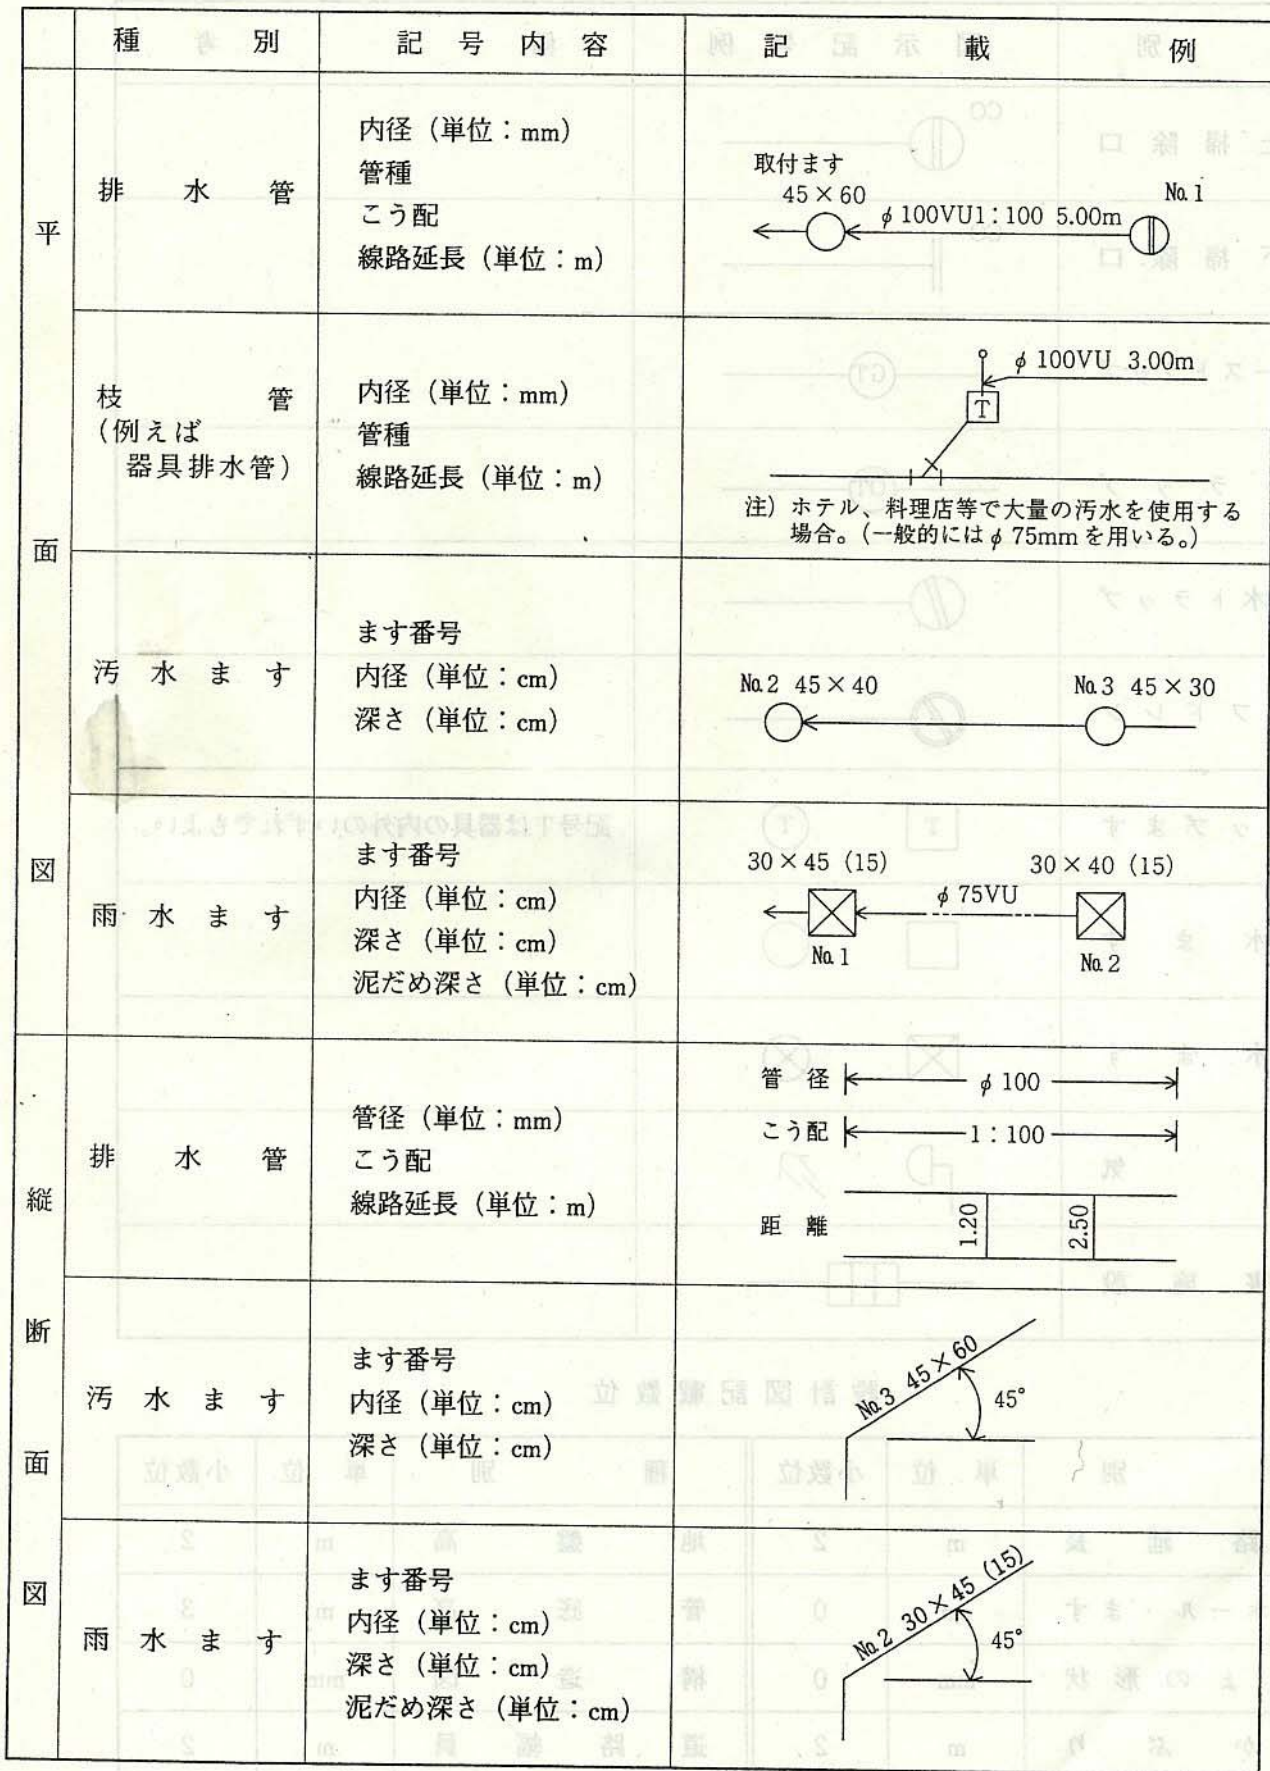 種別 記号内容 記載例
平面図
排水管
内径（単位：mm）
管種
こう配
線路延長（単位：m）
取付ます
45×60
φ100VU1：100 5.00m
№1
枝管
（例えば
器具排水管）
内径（単位：mm）
管種
線路延長（単位：m）
φ100VU 3.00m
T
注）ホテル、料理店等で大量の汚水を使用する
場合。（一般的にはφ75mmを用いる。）
汚水ます
ます番号
内径（単位：cm）
深さ（単位：cm）
№2 45×40
№3 45×30
雨水ます
ます番号
内径（単位：cm）
深さ（単位：cm）
泥だめ深さ（単位：cm）
30×45（15）
30×40（15）
φ75VU
№1
№2
縦断面図
排水管
管径（単位：mm）
こう配
線路延長（単位：m）
管径 φ100
こう配 1：100
距離 1.20 2.50
汚水ます
ます番号
内径（単位：cm）
深さ（単位：cm）
№3 45×60
45°
雨水ます
ます番号
内径（単位：cm）
深さ（単位：cm）
泥だめ深さ（単位：cm）
№2 30×45（15）
45°